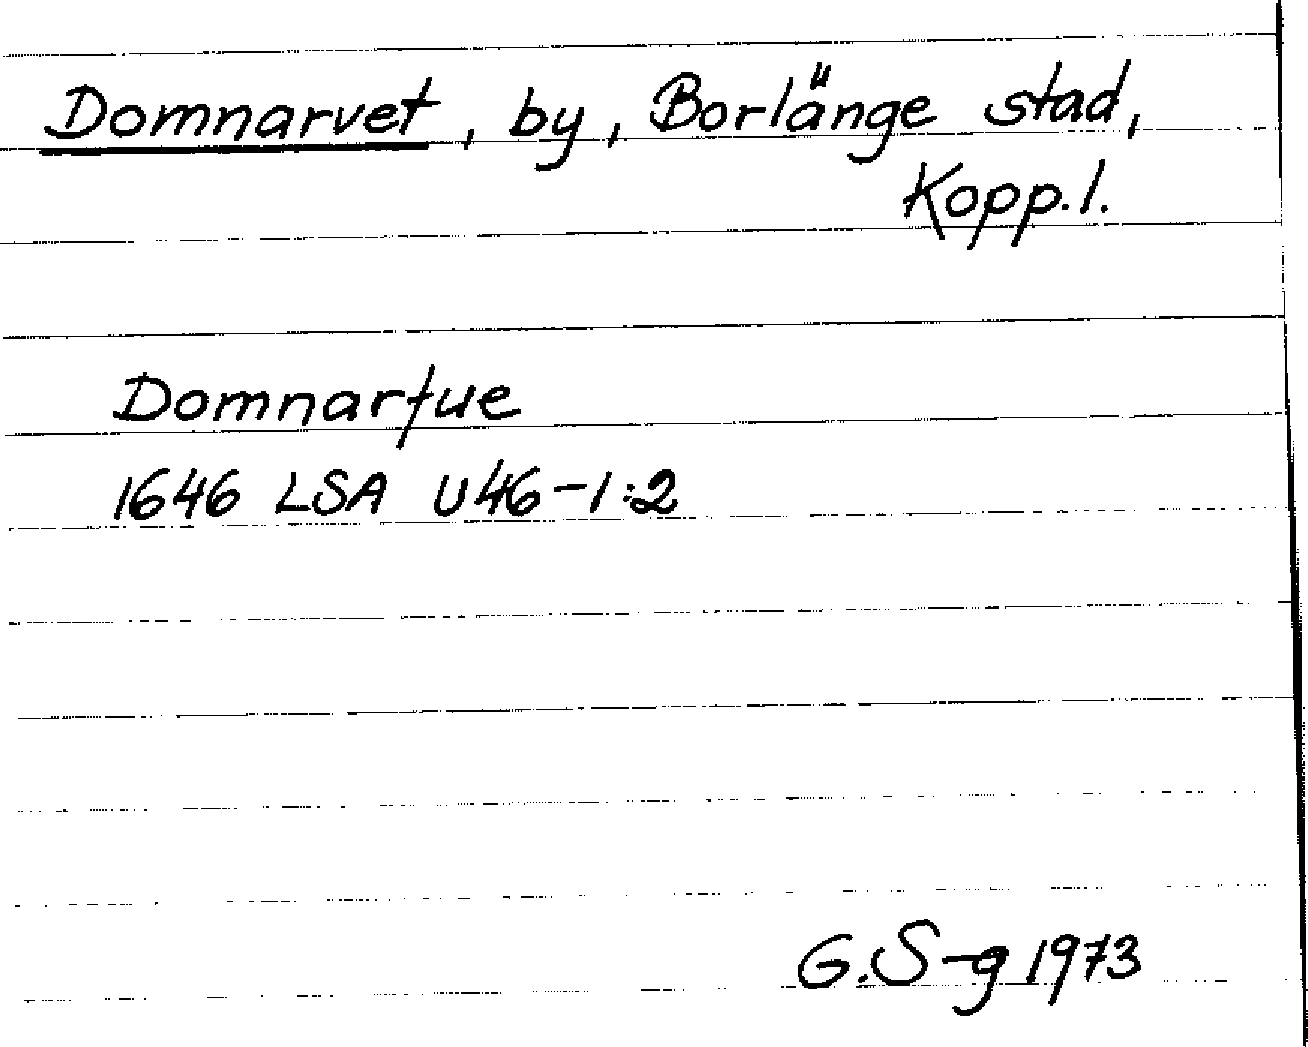 Domnarvet, by, Borlänge stad,
Kopp.l.
Domnarfue
1646 LSA U46-1:2
G.S-g 1973